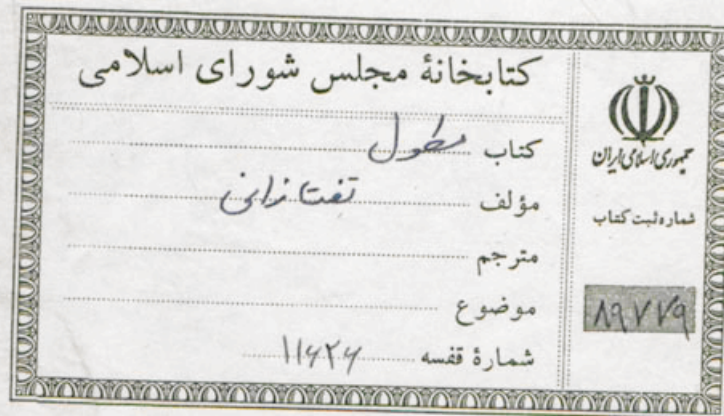 کتابخانهٔ مجلس شورای اسلامی
کتاب مطول
مؤلف تفتازانی
مترجم
موضوع
شمارهٔ قفسه ۱۱۶۲۶
جمهوری اسلامی ایران
شماره ثبت کتاب
۸۹۷۷۹